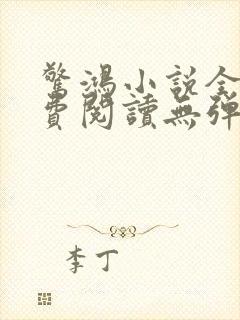 驚鴻小說全
費閱讀無彈
李丁